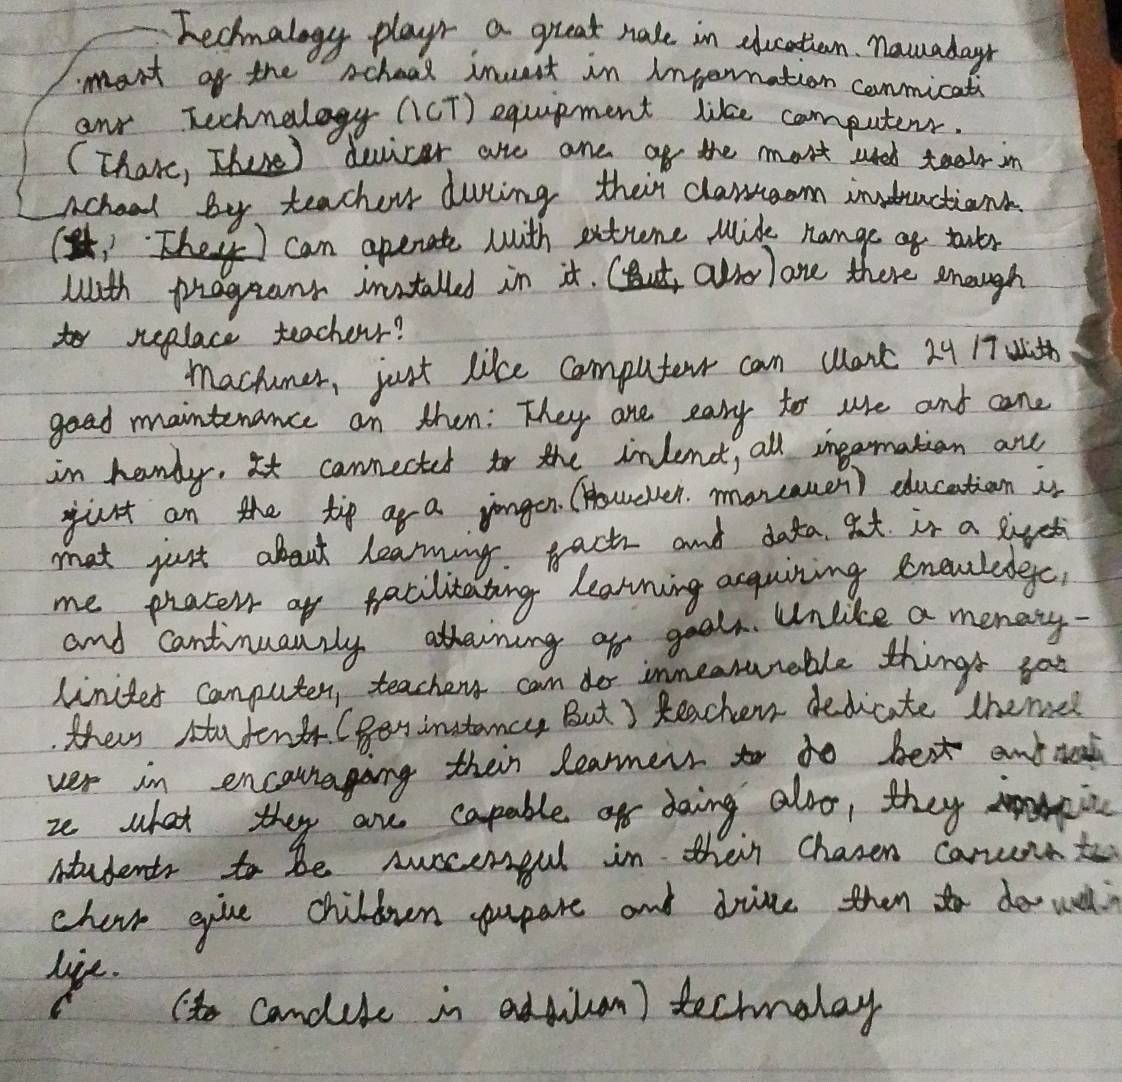 Technology plays a great role in education. Nowadays
most of the school invest in Information commicati
ons Technology (ICT) equipment like computers.
(Those, These) devices are one of the most used tools in
school by teachers during their classroom instructions.
(It, They) can operate with extreme wide range of tasks
with programs installed in it. (But, Also) are these enough
to replace teachers?
Machines, just like computers can work 24/7 with
good maintenance on them: They are easy to use and come
in handy. It connected to the internet, all information are
just on the tip of a finger. (However, moreover) education is
not just about learning facts and data. It is a lifeti
me process of facilitating learning acquiring knowledege,
and continuously attaining of goals. Unlike a memory-
limited computer, teachers can do immeasurable things for
their students. (For instance, But) teachers dedicate themsel
ves in encouraging their learners to do best and reali
ze what they are capable of doing also, they inspire
students to be successful in their chosen careers tea
chers give children purpose and drive them to do well in
life.
(to conclude in addition) technology